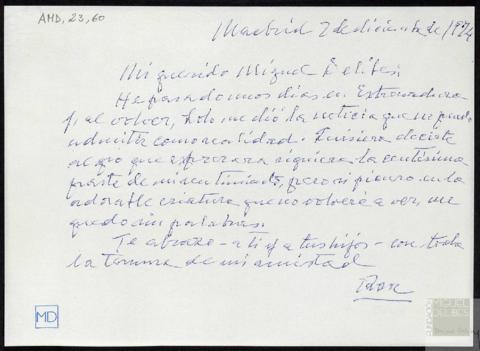 AMD, 23, 60
Madrid 2 de diciembre de / 1974
Mi querido Miguel Delibes:
He pasado unos días en Extremadura
y, al volver, Lolo me dió la noticia que no puedo
admitir como realidad. Quisiera decirte
algo que expresara siquiera la centésima
parte de mi sentimiento, pero si pienso en la
adorable criatura que no volveré a ver, me
quedo sin palabras.
Te abrazo - a ti y a tus hijos - con toda
la ternura de mi amistad
MD
FUNDACIÓN
MIGUEL
DELIBES